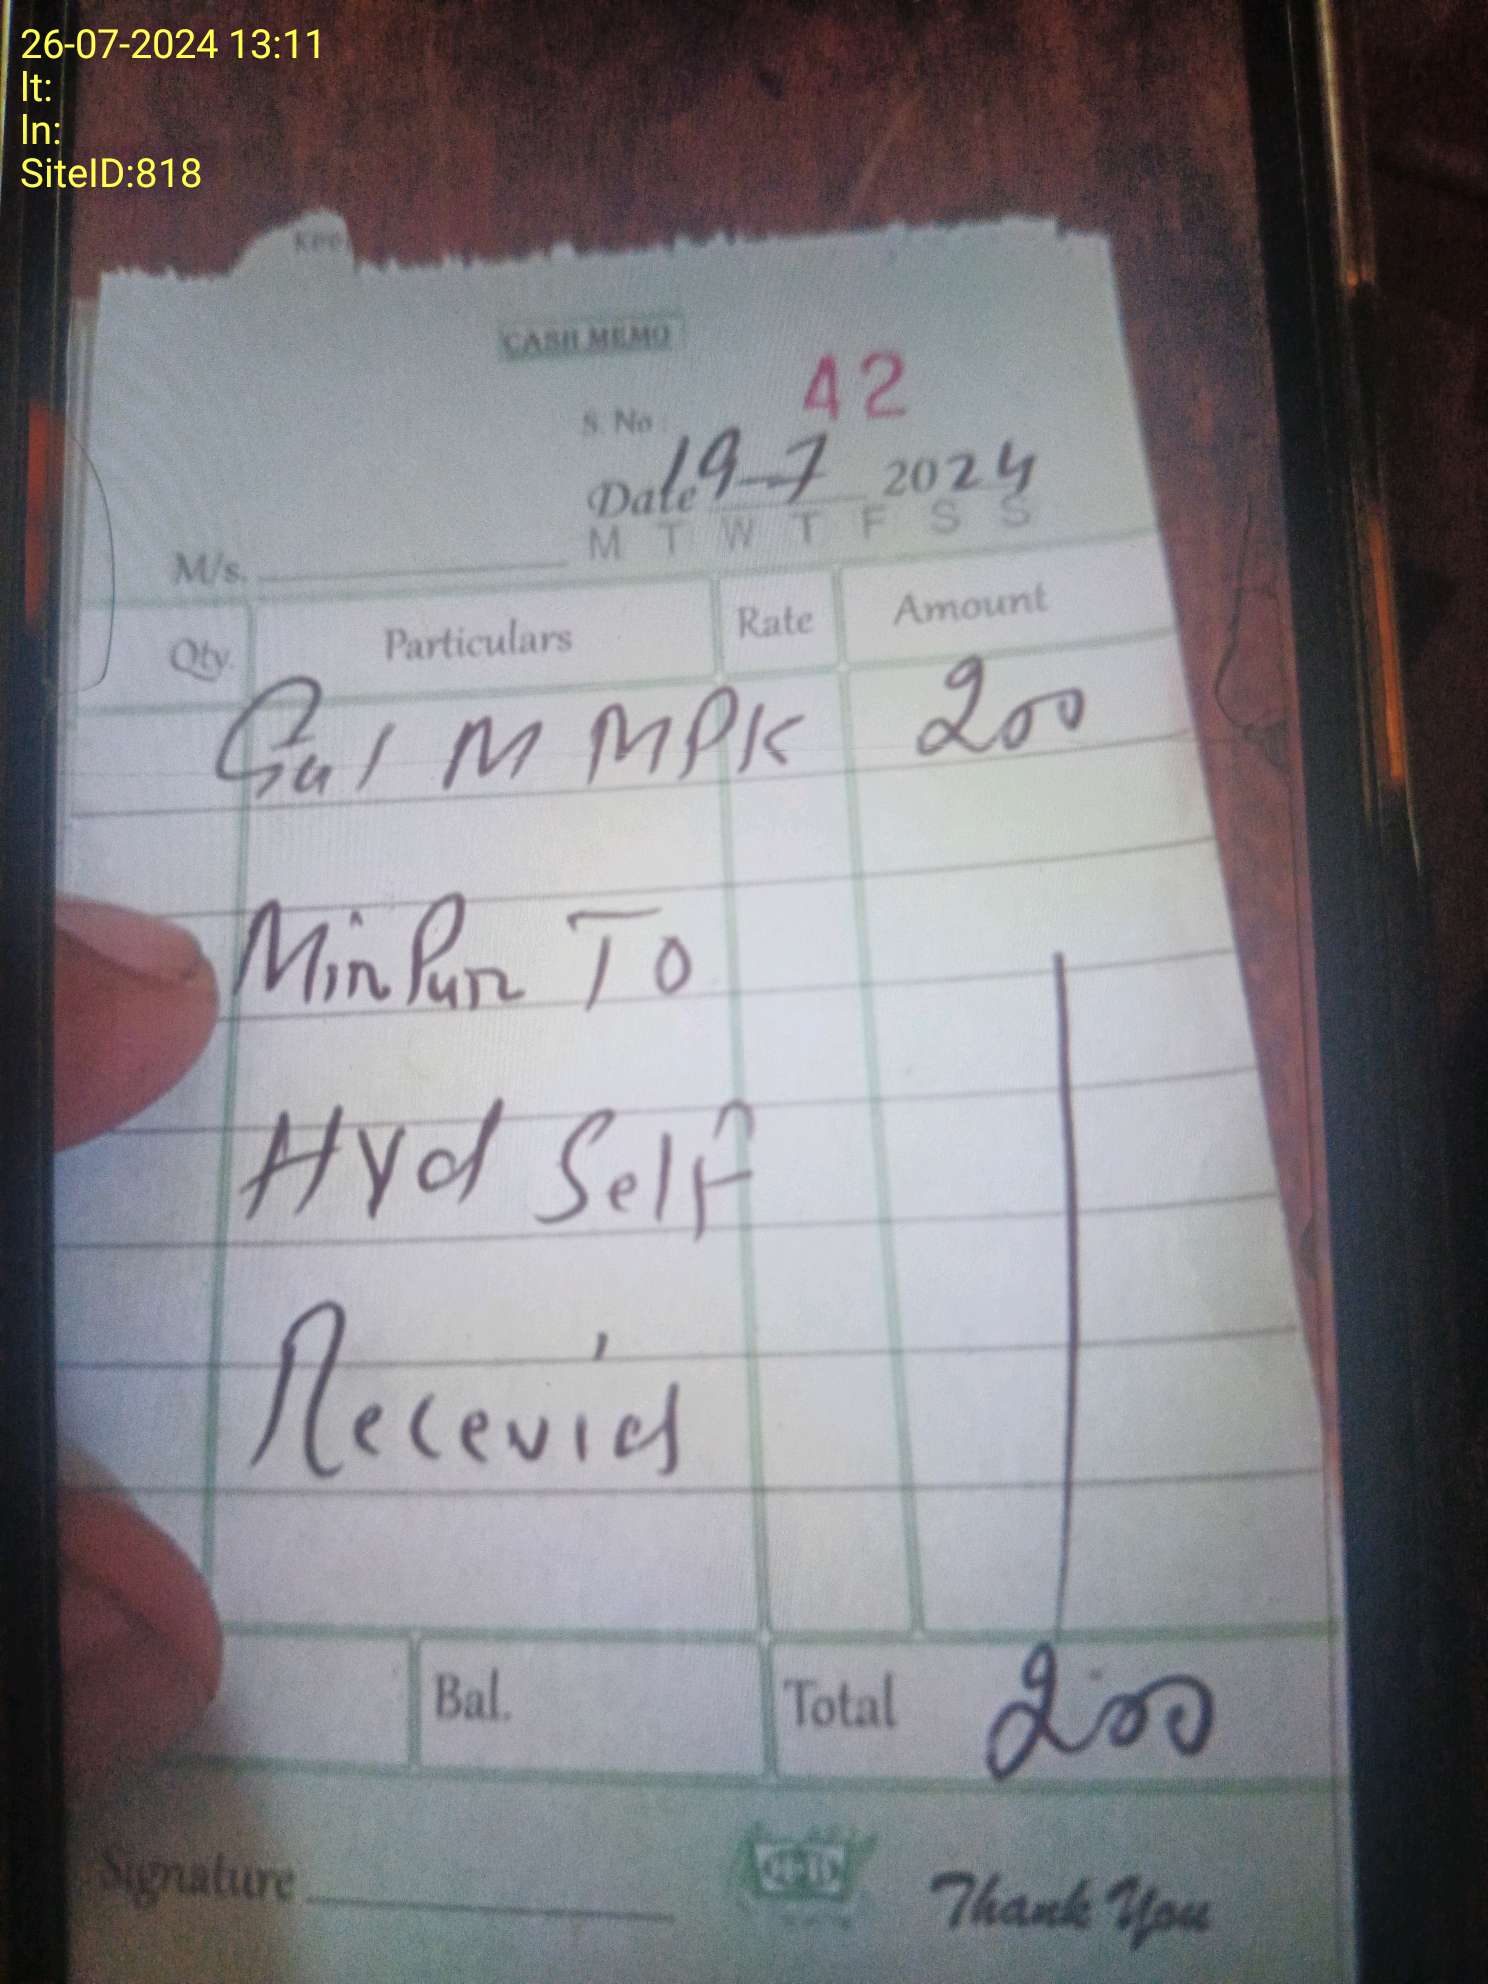 26-07-2024 13:11
lt:
ln:
SiteID:818
Kee
CASH MEMO
S. No : 42
Date 19-7 2024
M T W T F S S
M/s.
Qty. Particulars Rate Amount
Gul M MPK 200
Min Pur To
Hyd Self
Recevid
Bal. Total 200
Signature Thank You